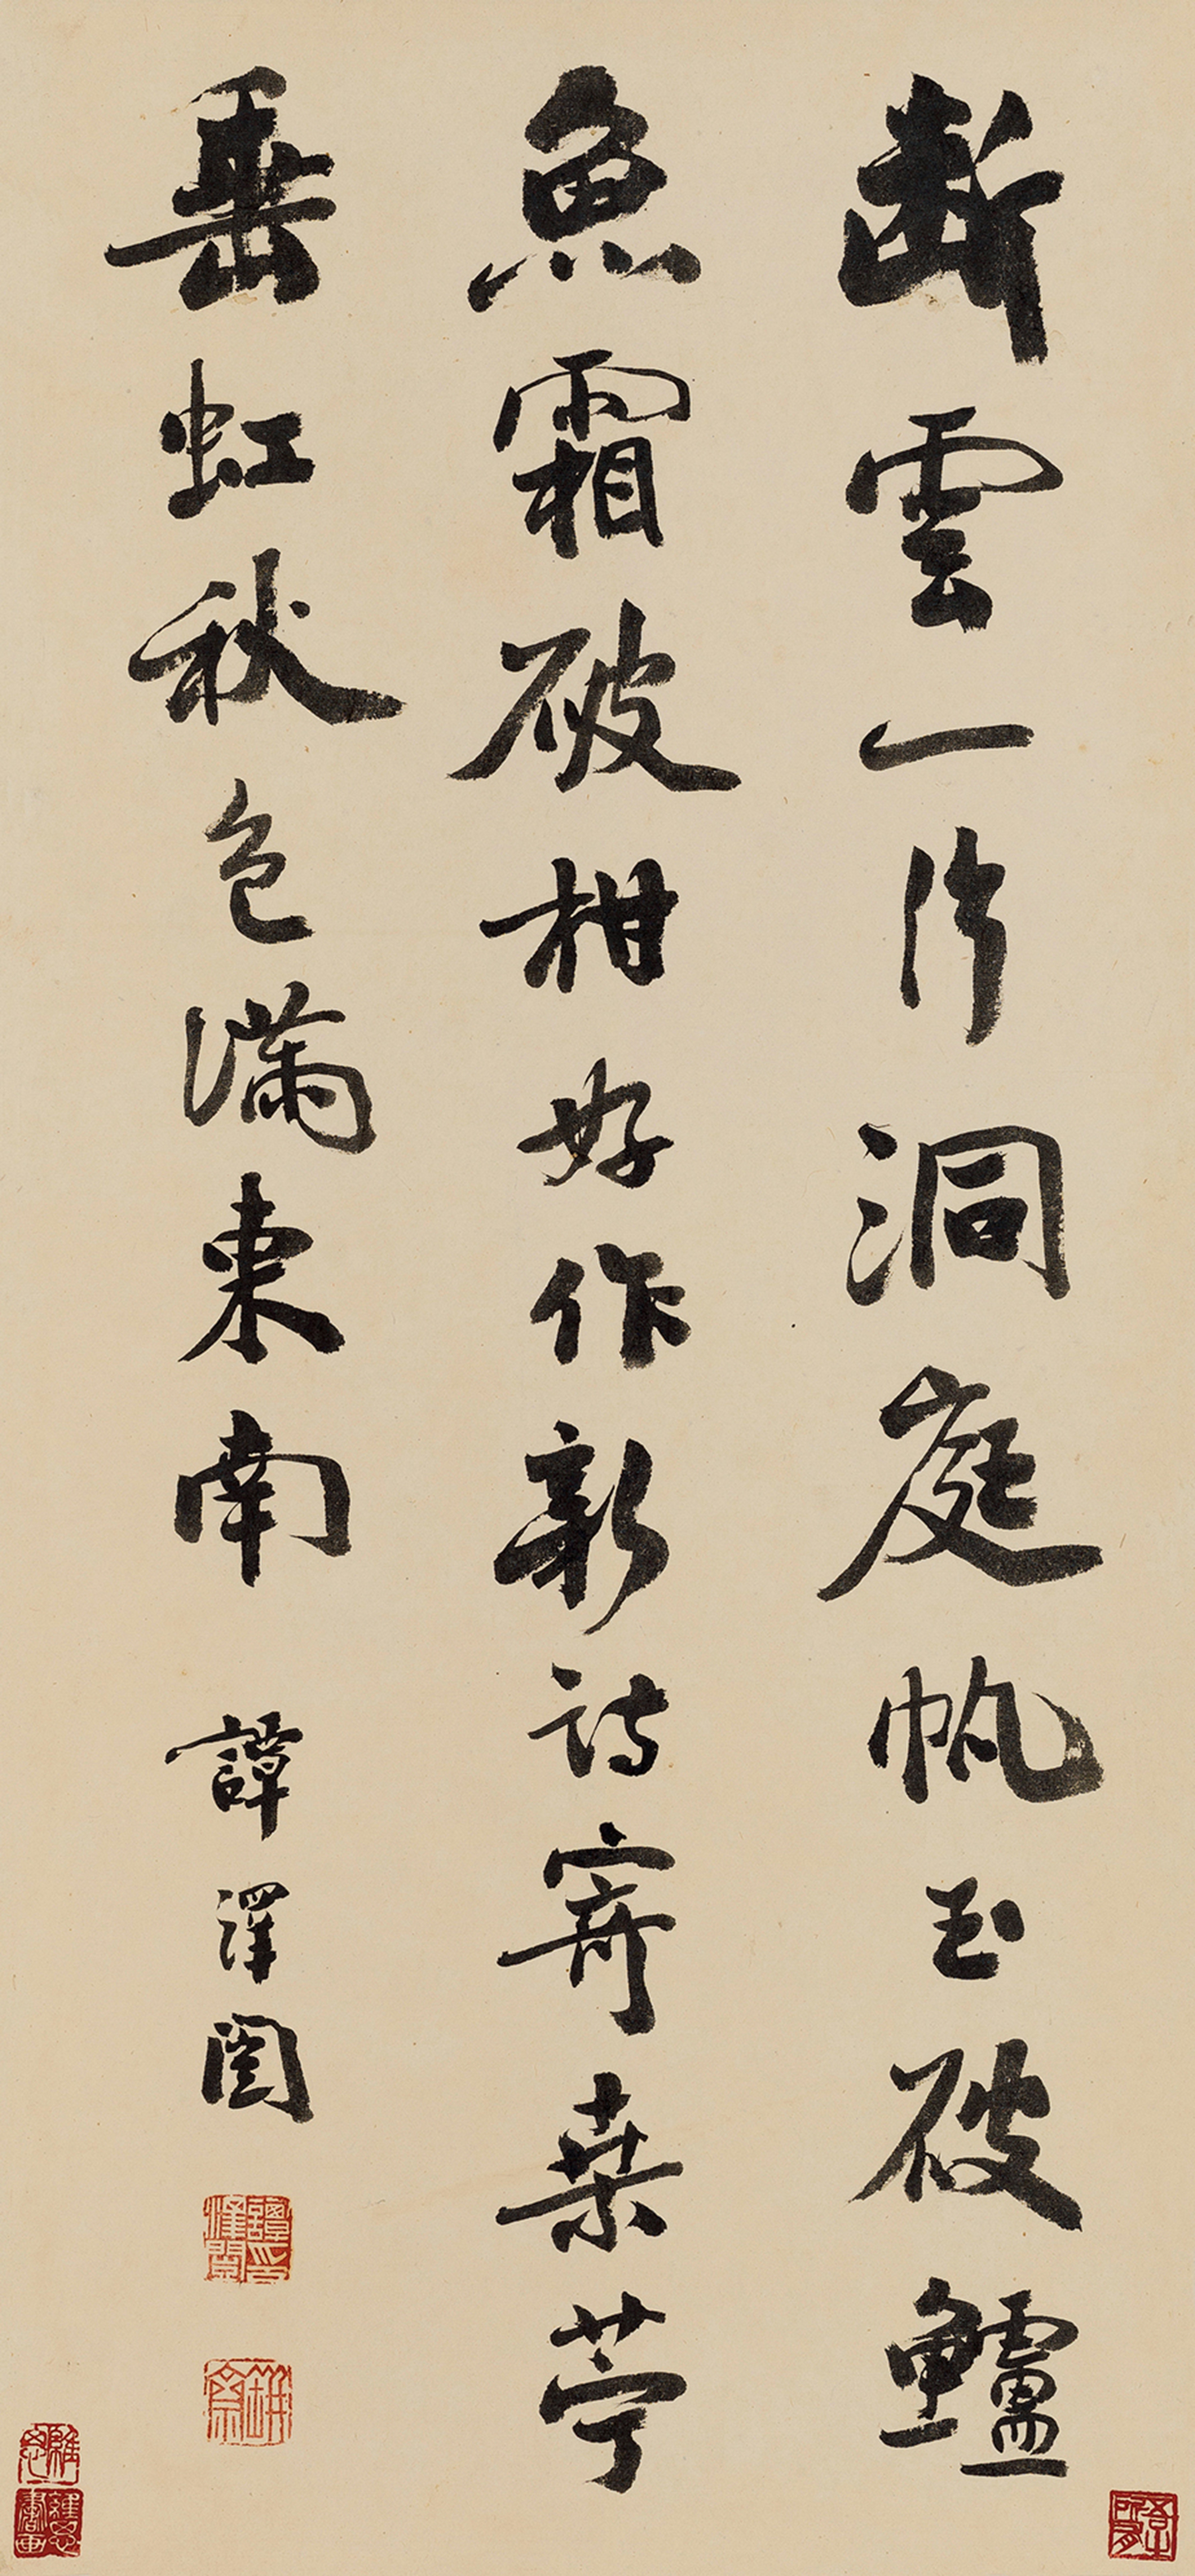 斷雲一片洞庭帆玉破鱸
魚霜破柑好作新詩寄桑苧
垂虹秋色滿東南 譚澤闓
譚澤闓印
缾齋